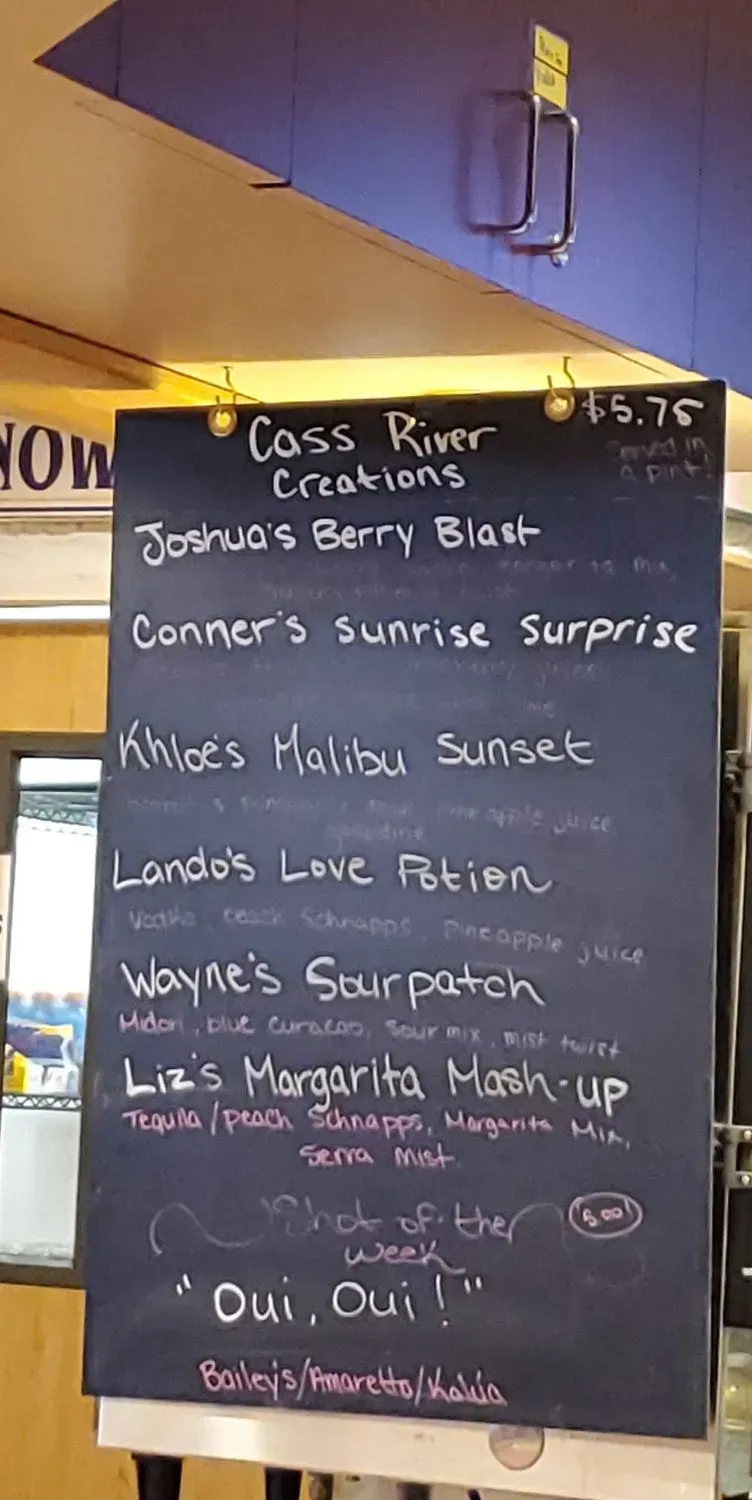 NOW
Cass River
$5.75
Creations
Served in
a pint!
Joshua's Berry Blast
Conner's Sunrise Surprise
Khloe's Malibu Sunset
pineapple juice
Lando's Love Potion
Vodka, Peach Schnapps, Pineapple juice
Wayne's Sourpatch
Midori, blue curacao, sour mix, mist twist
Liz's Margarita Mash-up
Tequila/peach Schnapps, Margarita Mix,
Serra Mist
Shot of the
5.00
week
"Oui, Oui!"
Bailey's/Amaretto/Kalúa